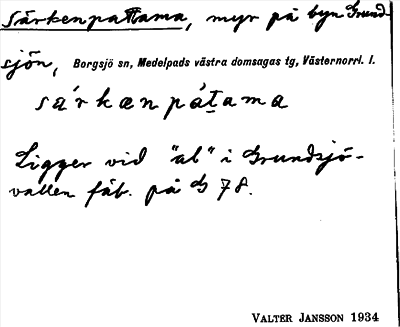 Särkenpattama, myr på byn Grund-
sjön, Borgsjö sn, Medelpads västra domsagas tg, Västernorrl. l.
sárkænpátama
Ligger vid "al" i Grundsjö-
vallen fäb. på G 78.
VALTER JANSSON 1934